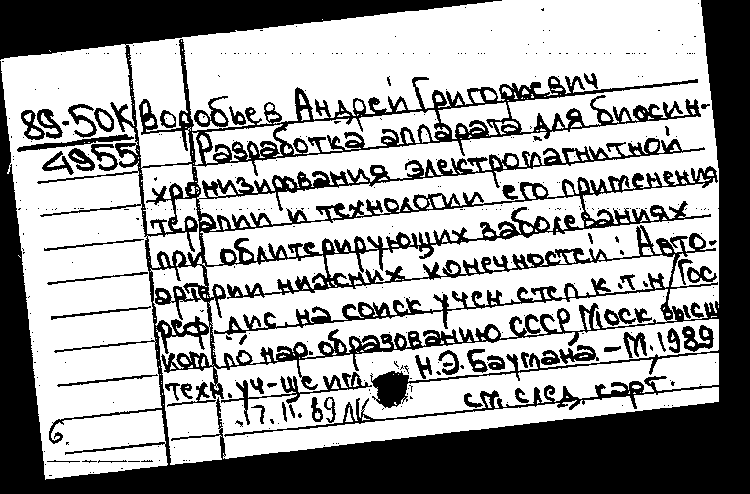 89-50К
4955
Воробьев Андрей Григорьевич
Разработка аппарата для биосин-
хронизирования электромагнитной
терапии и технологии его применения
при облитерирующих заболеваниях
артерии нижних конечностей: Авто-
реф. дис. на соиск. учен. степ. к.т.н/Гос
ком по нар. образованию СССР, Моск. высш
техн. уч-ще им. Н.Э.Баумана.-М.1989
см. след. карт.
6.